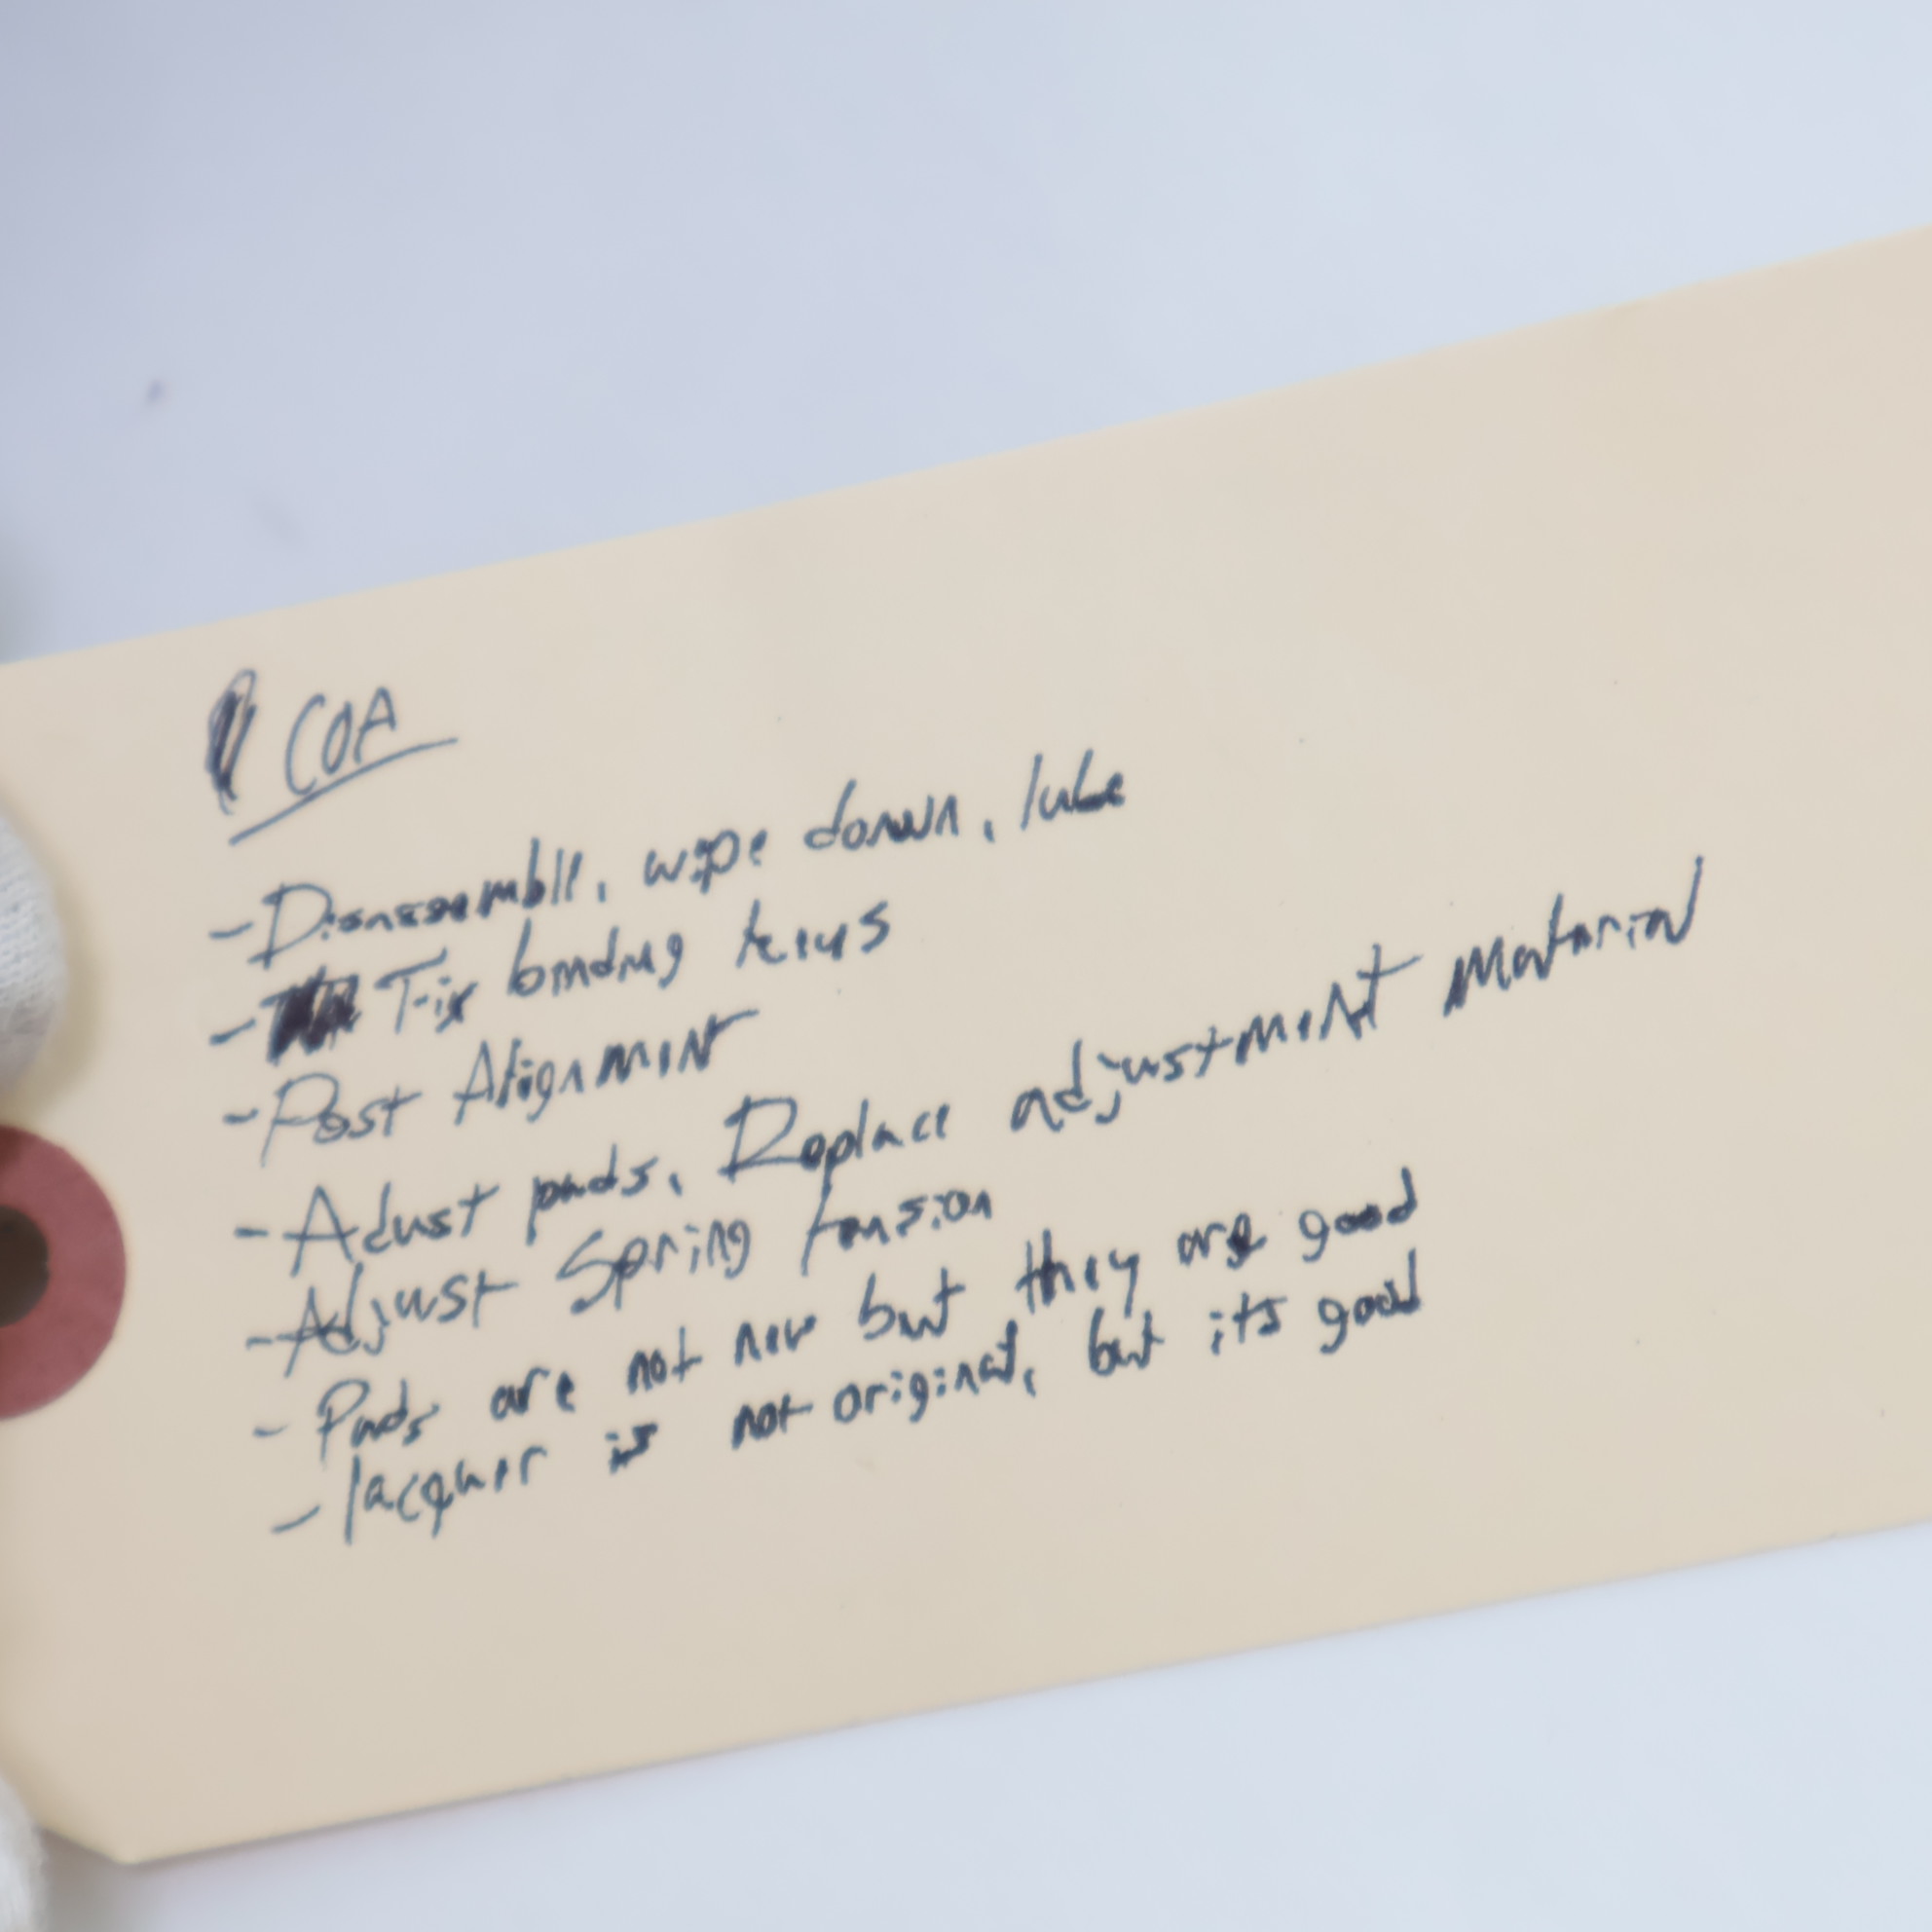 COA
- Disassemble, wipe down, lube
- Fix binding keys
- Post Alignment
- Adust pads, Replace adjustment material
- Adjust Spring tension
- Pads are not new but they are good
- lacquer is not original, but its good